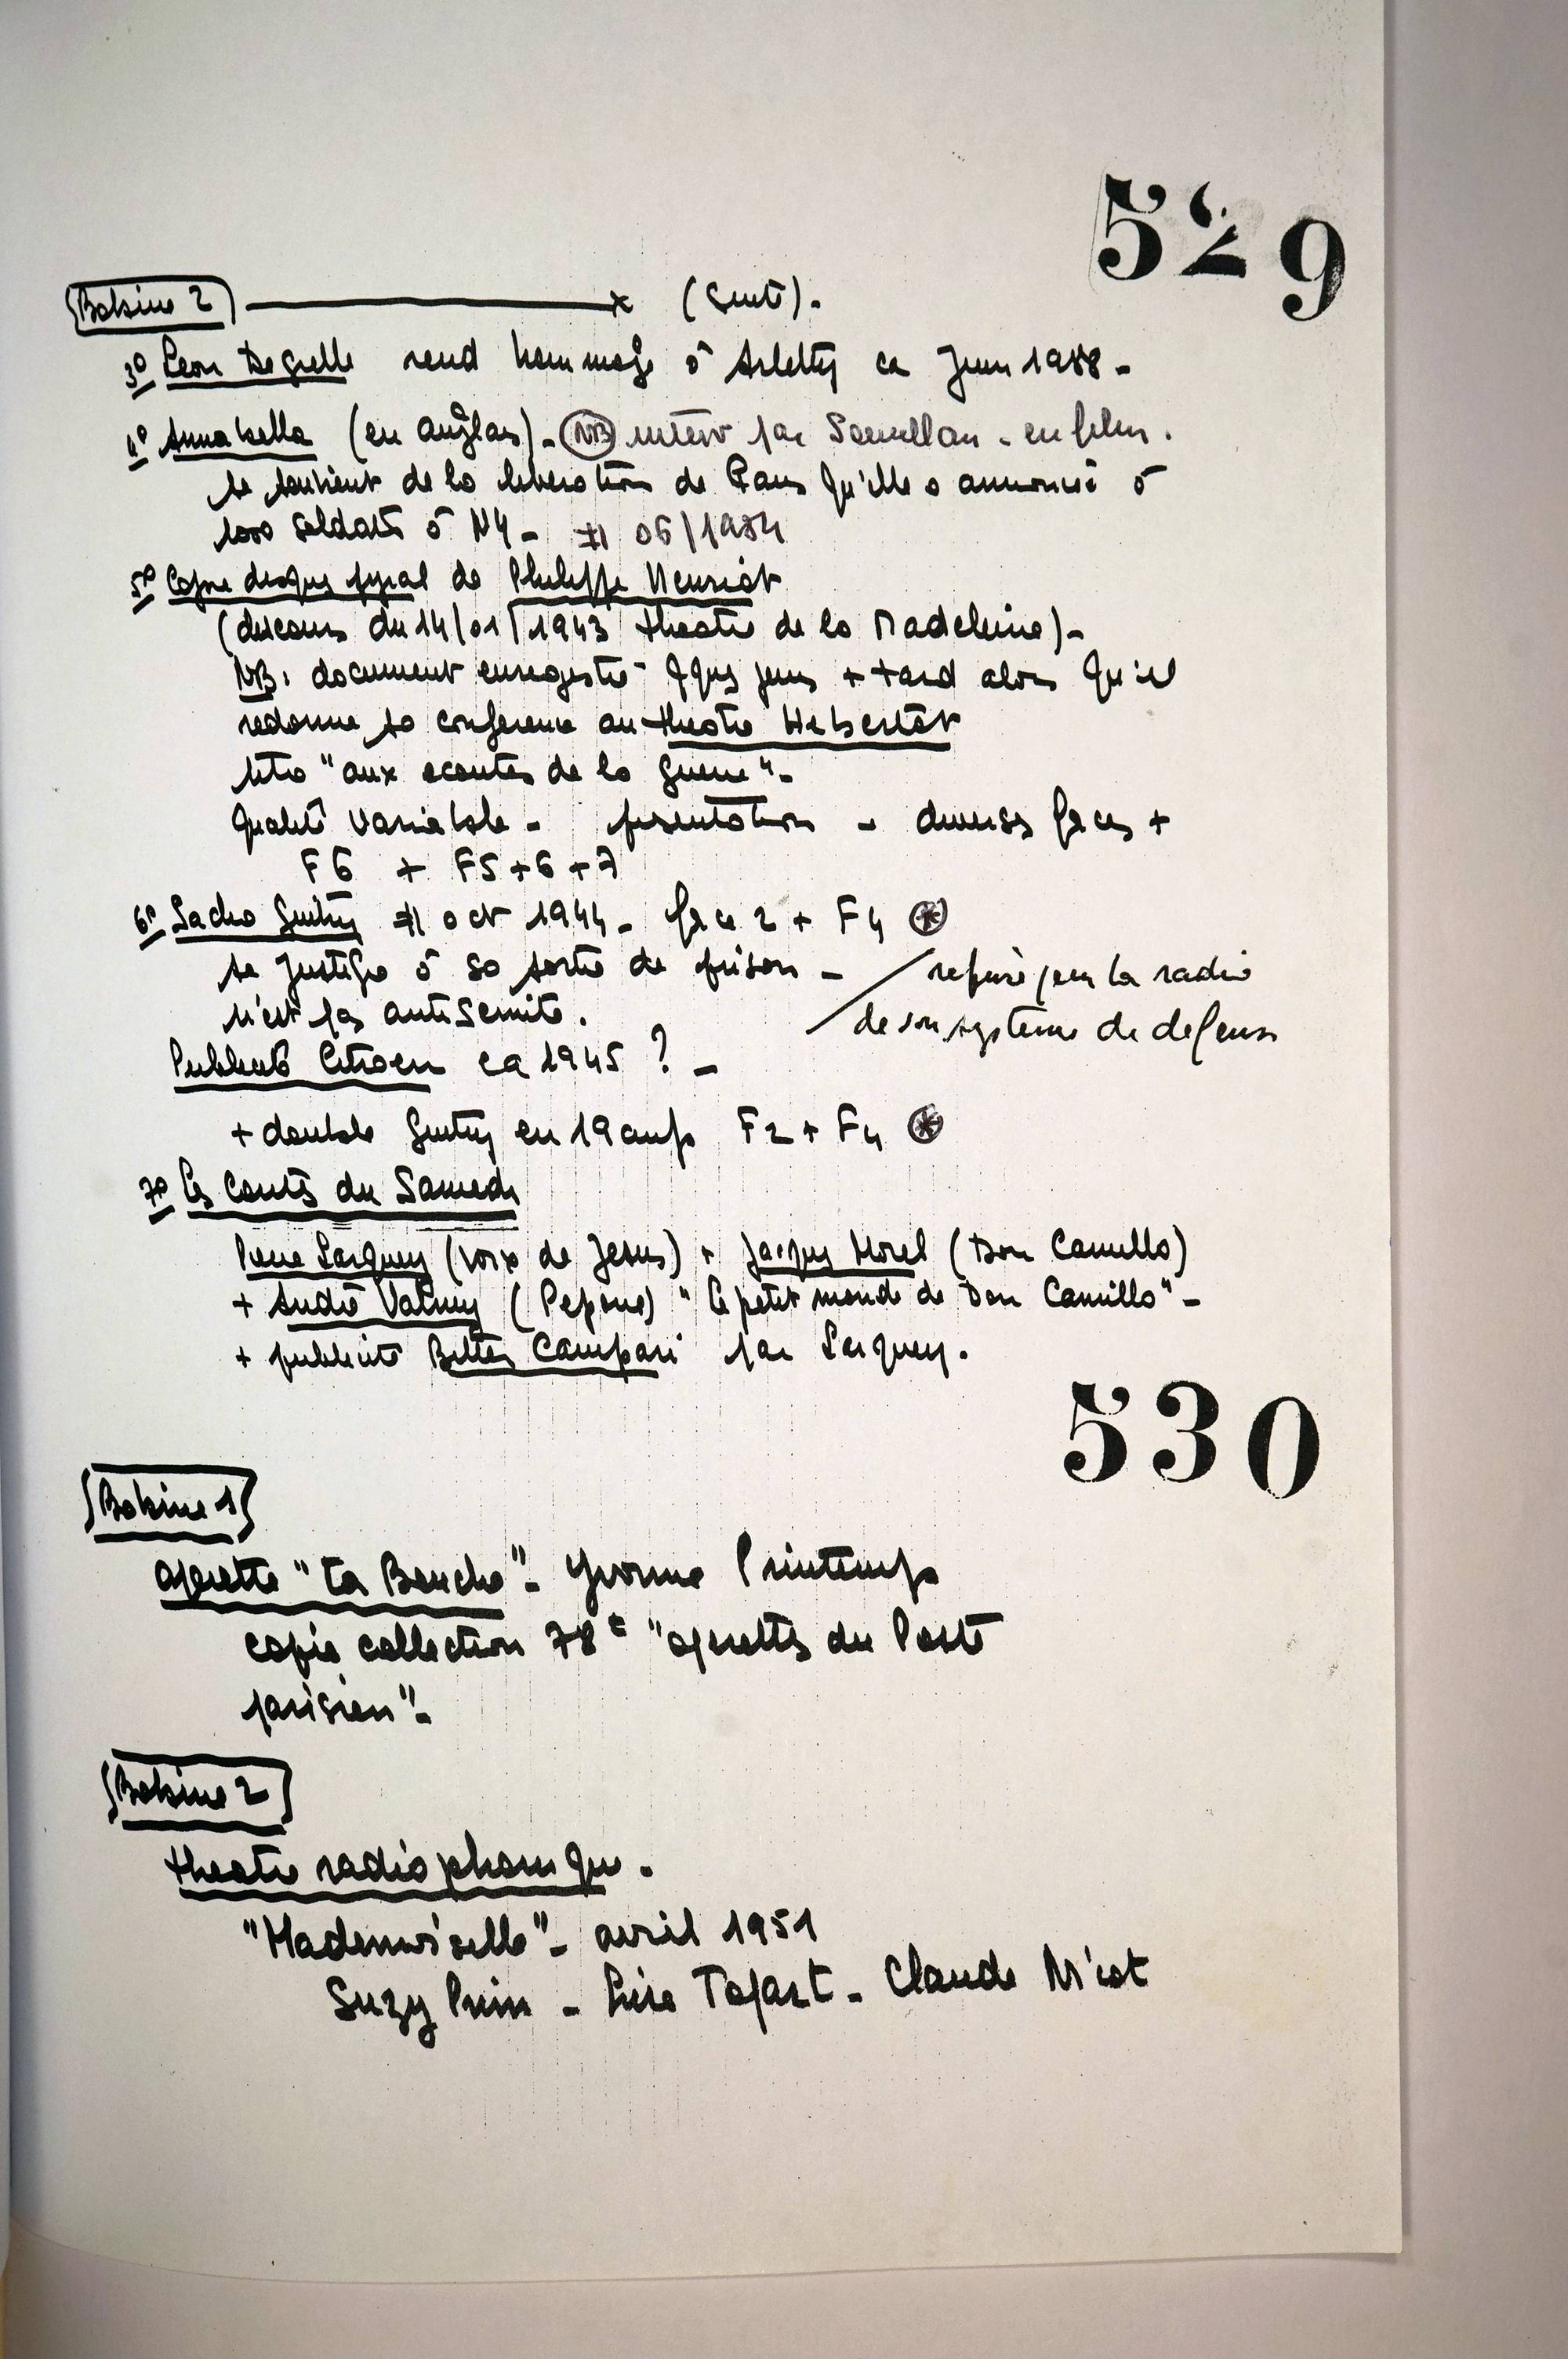 529
Bobine 2 (suite).
3° Leon Degrelle rend hommage à Arletty ca Juin 1988 -
4° Annabella (en anglais). NB interv par - en film.
se souvient de la liberation de Paris qu'elle a annoncée à
1000 soldats à NY - 06/1984
5° Copie disque pyral de Philippe Henriot
(discours du 14/01/1943 théatre de la Madeleine) -
NB: document enregistré qqs jours + tard alors qu'il
redonne sa conference au theatre Hebertot
titre "aux ecoutes de la guerre" -
Qualité variable - presentation - diverses faces +
F6 + F5+6+7
6° Sacha Guitry oct 1944 - face 2 + F4 *
se justifie à sa sortie de prison -
n'est pas antisemite.
/ refusé par la radio
de son systeme de defense
Publicité Citroen ca 1945 ? -
+ double Guitry en 19 F2 + F4 *
7° Les Contes du Samedi
Pierre Larquey (voix de Jesus) + Jacques Morel (Don Camillo)
+ André Valmy (Pepone) "Le petit monde de Don Camillo" -
+ publicité Bitter Campari par Larquey.
530
Bobine 1
operette "Ta Bouche" - Yvonne Printemps
copie collection 78t "operettes du Poste
parisien" -
Bobine 2
theatre radiophonique.
"Mademoiselle" - avril 1951
Suzy Prim - Lise Topart - Claude Nicot